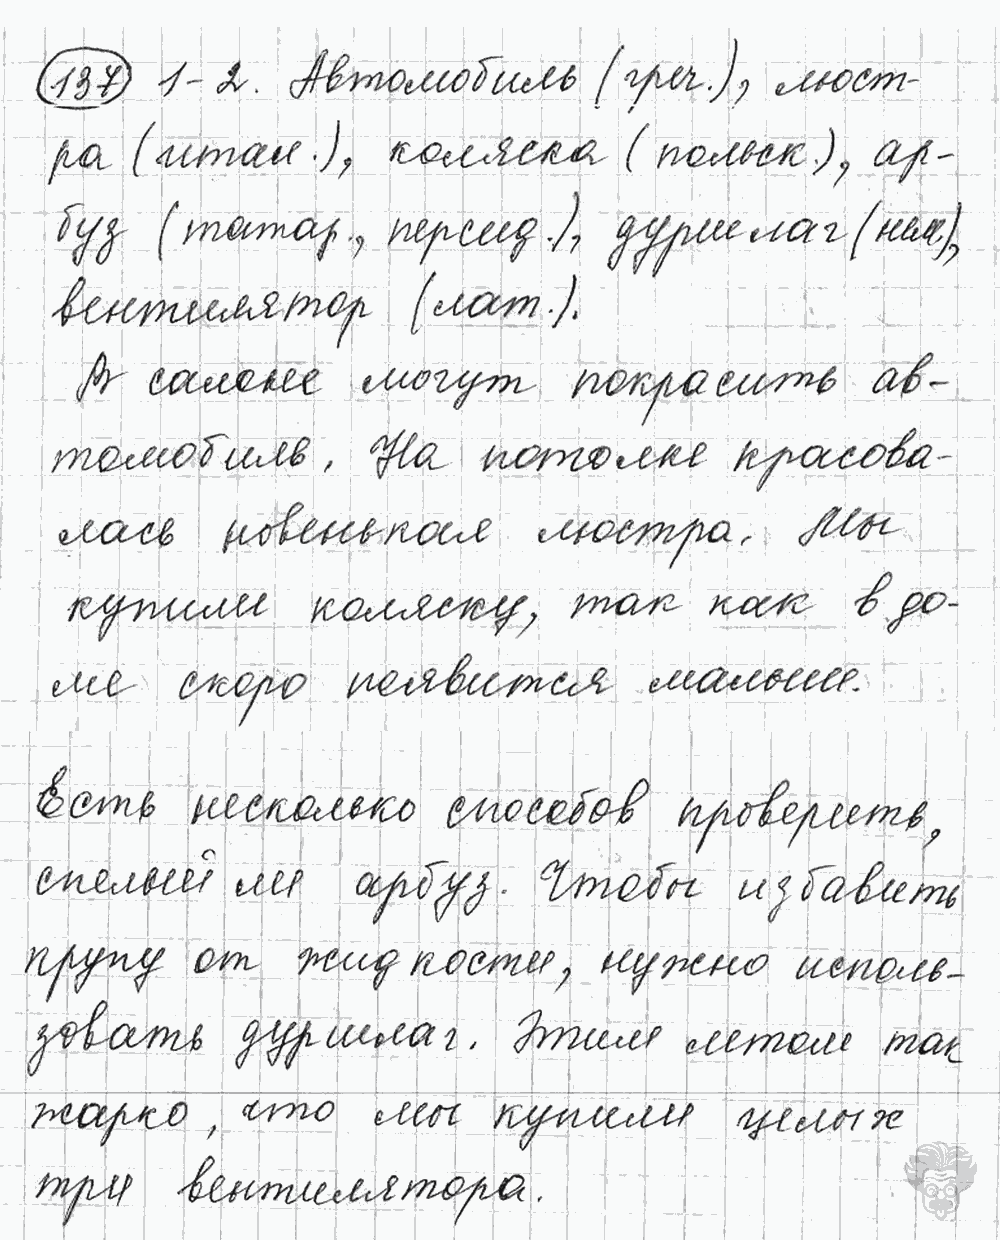 137 1-2. Автомобиль (греч.), люст-
ра (итал.), коляска (польск.), ар-
буз (татар., персид.), дуршлаг (нем.),
вентилятор (лат.).
В салоне могут покрасить ав-
томобиль. На потолке красова-
лась новенькая люстра. Мы
купили коляску, так как в до-
ме скоро появится малыш.
Есть несколько способов проверить,
спелый ли арбуз. Чтобы избавить
крупу от жидкости, нужно исполь-
зовать дуршлаг. Этим летом так
жарко, что мы купили целых
три вентилятора.